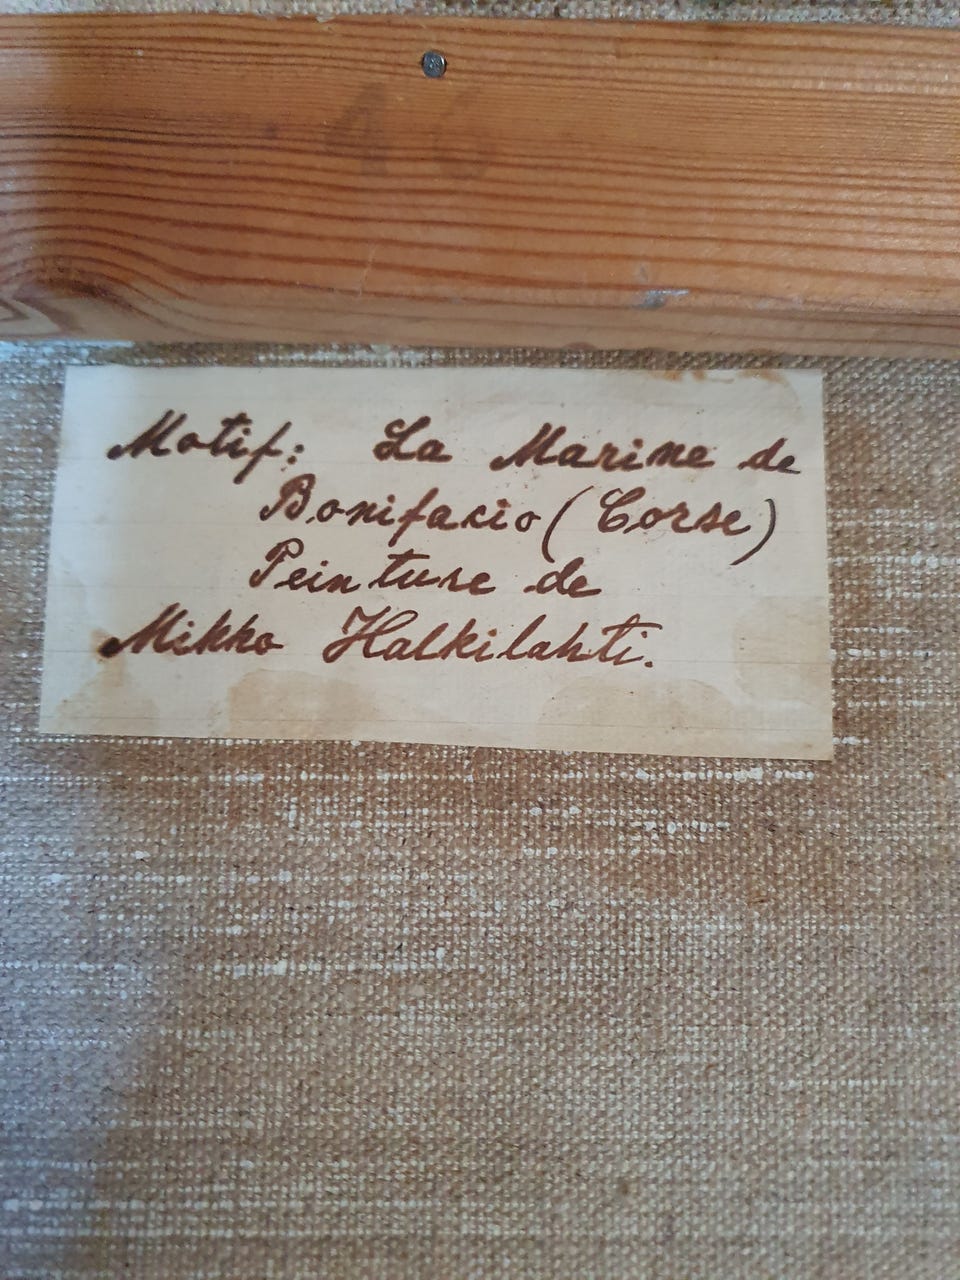 46
Motif: La Marine de
Bonifacio (Corse)
Peinture de
Mikko Halkilahti.